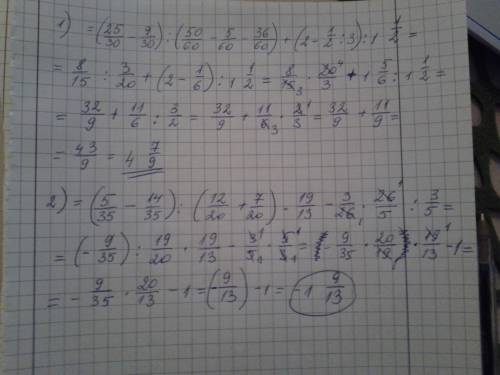 1) = (25/30 - 9/30) : (50/60 - 5/60 - 36/60) + (2 - 1/2 : 3) : 1 1/2 =
= 8/15 : 3/20 + (2 - 1/6) : 1 1/2 = 8/15 3 · 20 4/3 + 1 5/6 : 1 1/2 =
= 32/9 + 11/6 : 3/2 = 32/9 + 11/6 3 · 2 1/3 = 32/9 + 11/9 =
= 43/9 = 4 7/9
2) = (5/35 - 14/35) : (12/20 + 7/20) · 19/13 - 3/26 1 · 26 1/5 : 3/5 =
= (- 9/35) : 19/20 · 19/13 - 3 1/5 1 · 5 1/3 1 = - 9/35 · 20/19 1 · 19 1/13 - 1 =
= - 9/35 · 20/13 - 1 = (- 9/13) - 1 = - 1 9/13